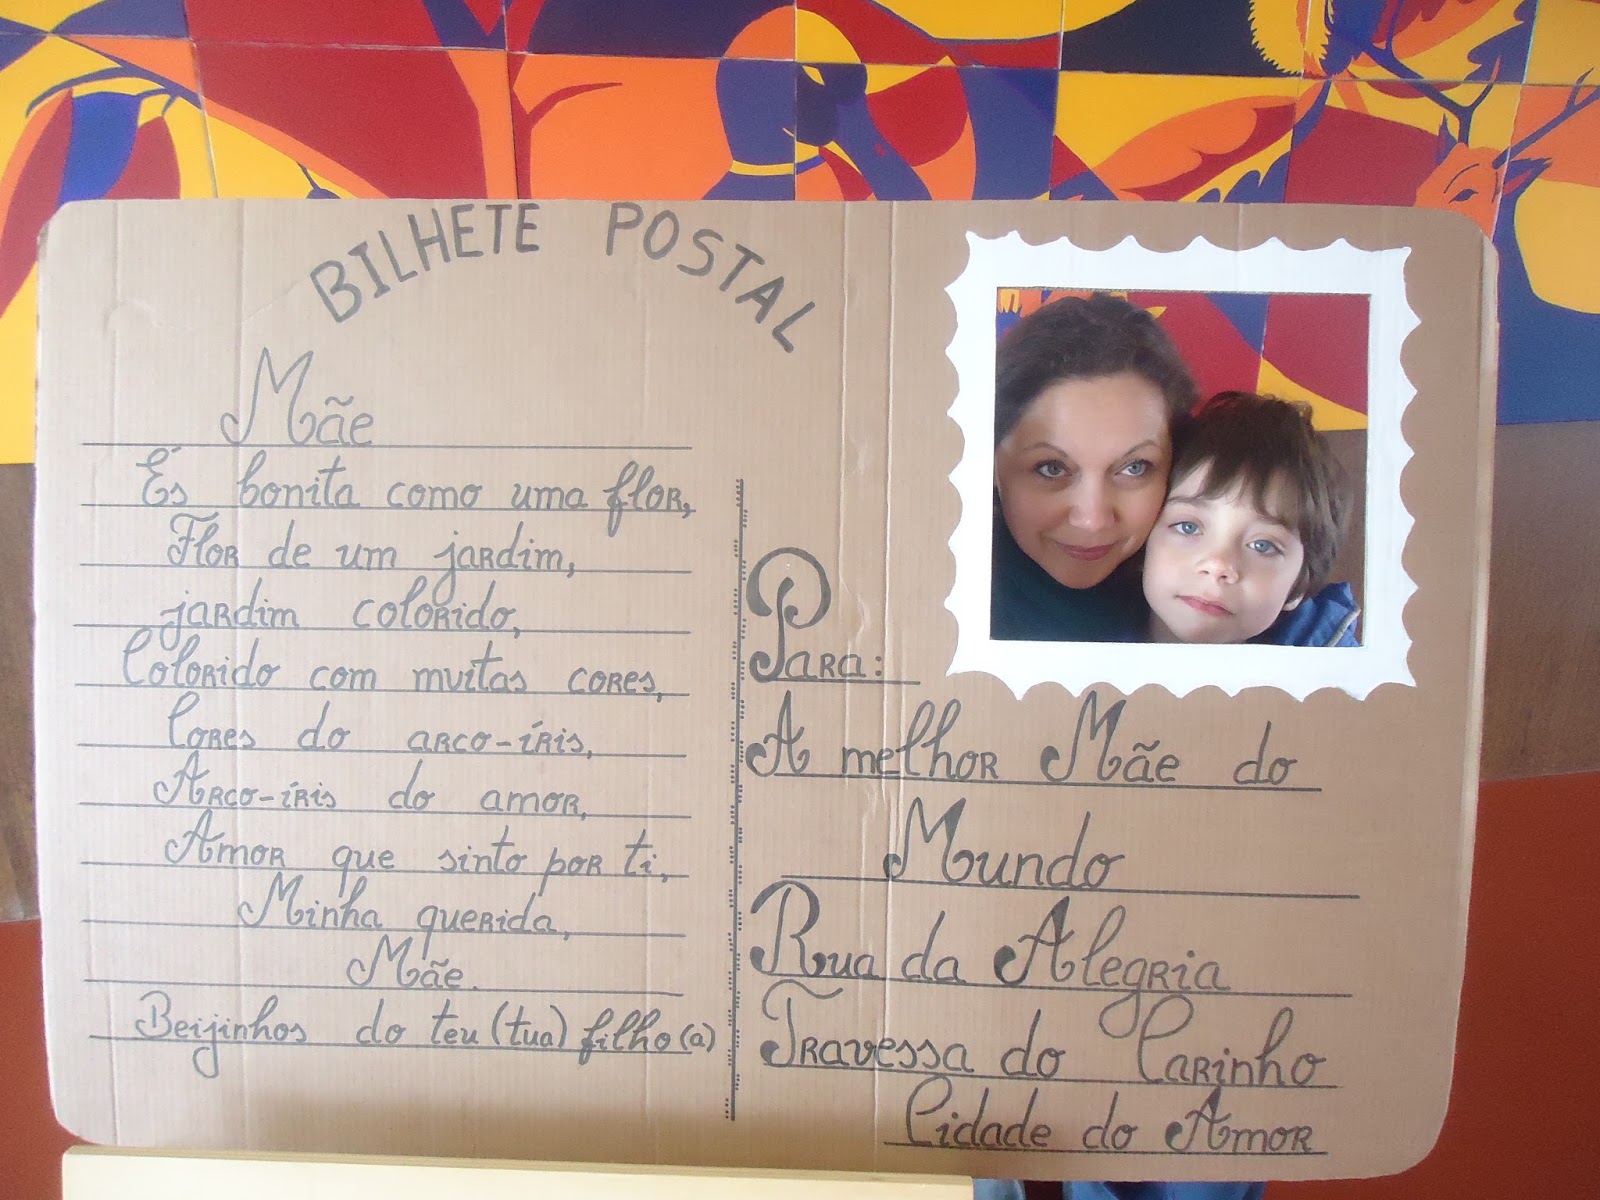 BILHETE POSTAL
Mãe
És bonita como uma flor,
Flor de um jardim,
jardim colorido,
Colorido com muitas cores,
Cores do arco-íris,
Arco-íris do amor,
Amor que sinto por ti,
Minha querida,
Mãe.
Beijinhos do teu (tua) filho(a)
Para:
A melhor Mãe do
Mundo
Rua da Alegria
Travessa do Carinho
Cidade do Amor